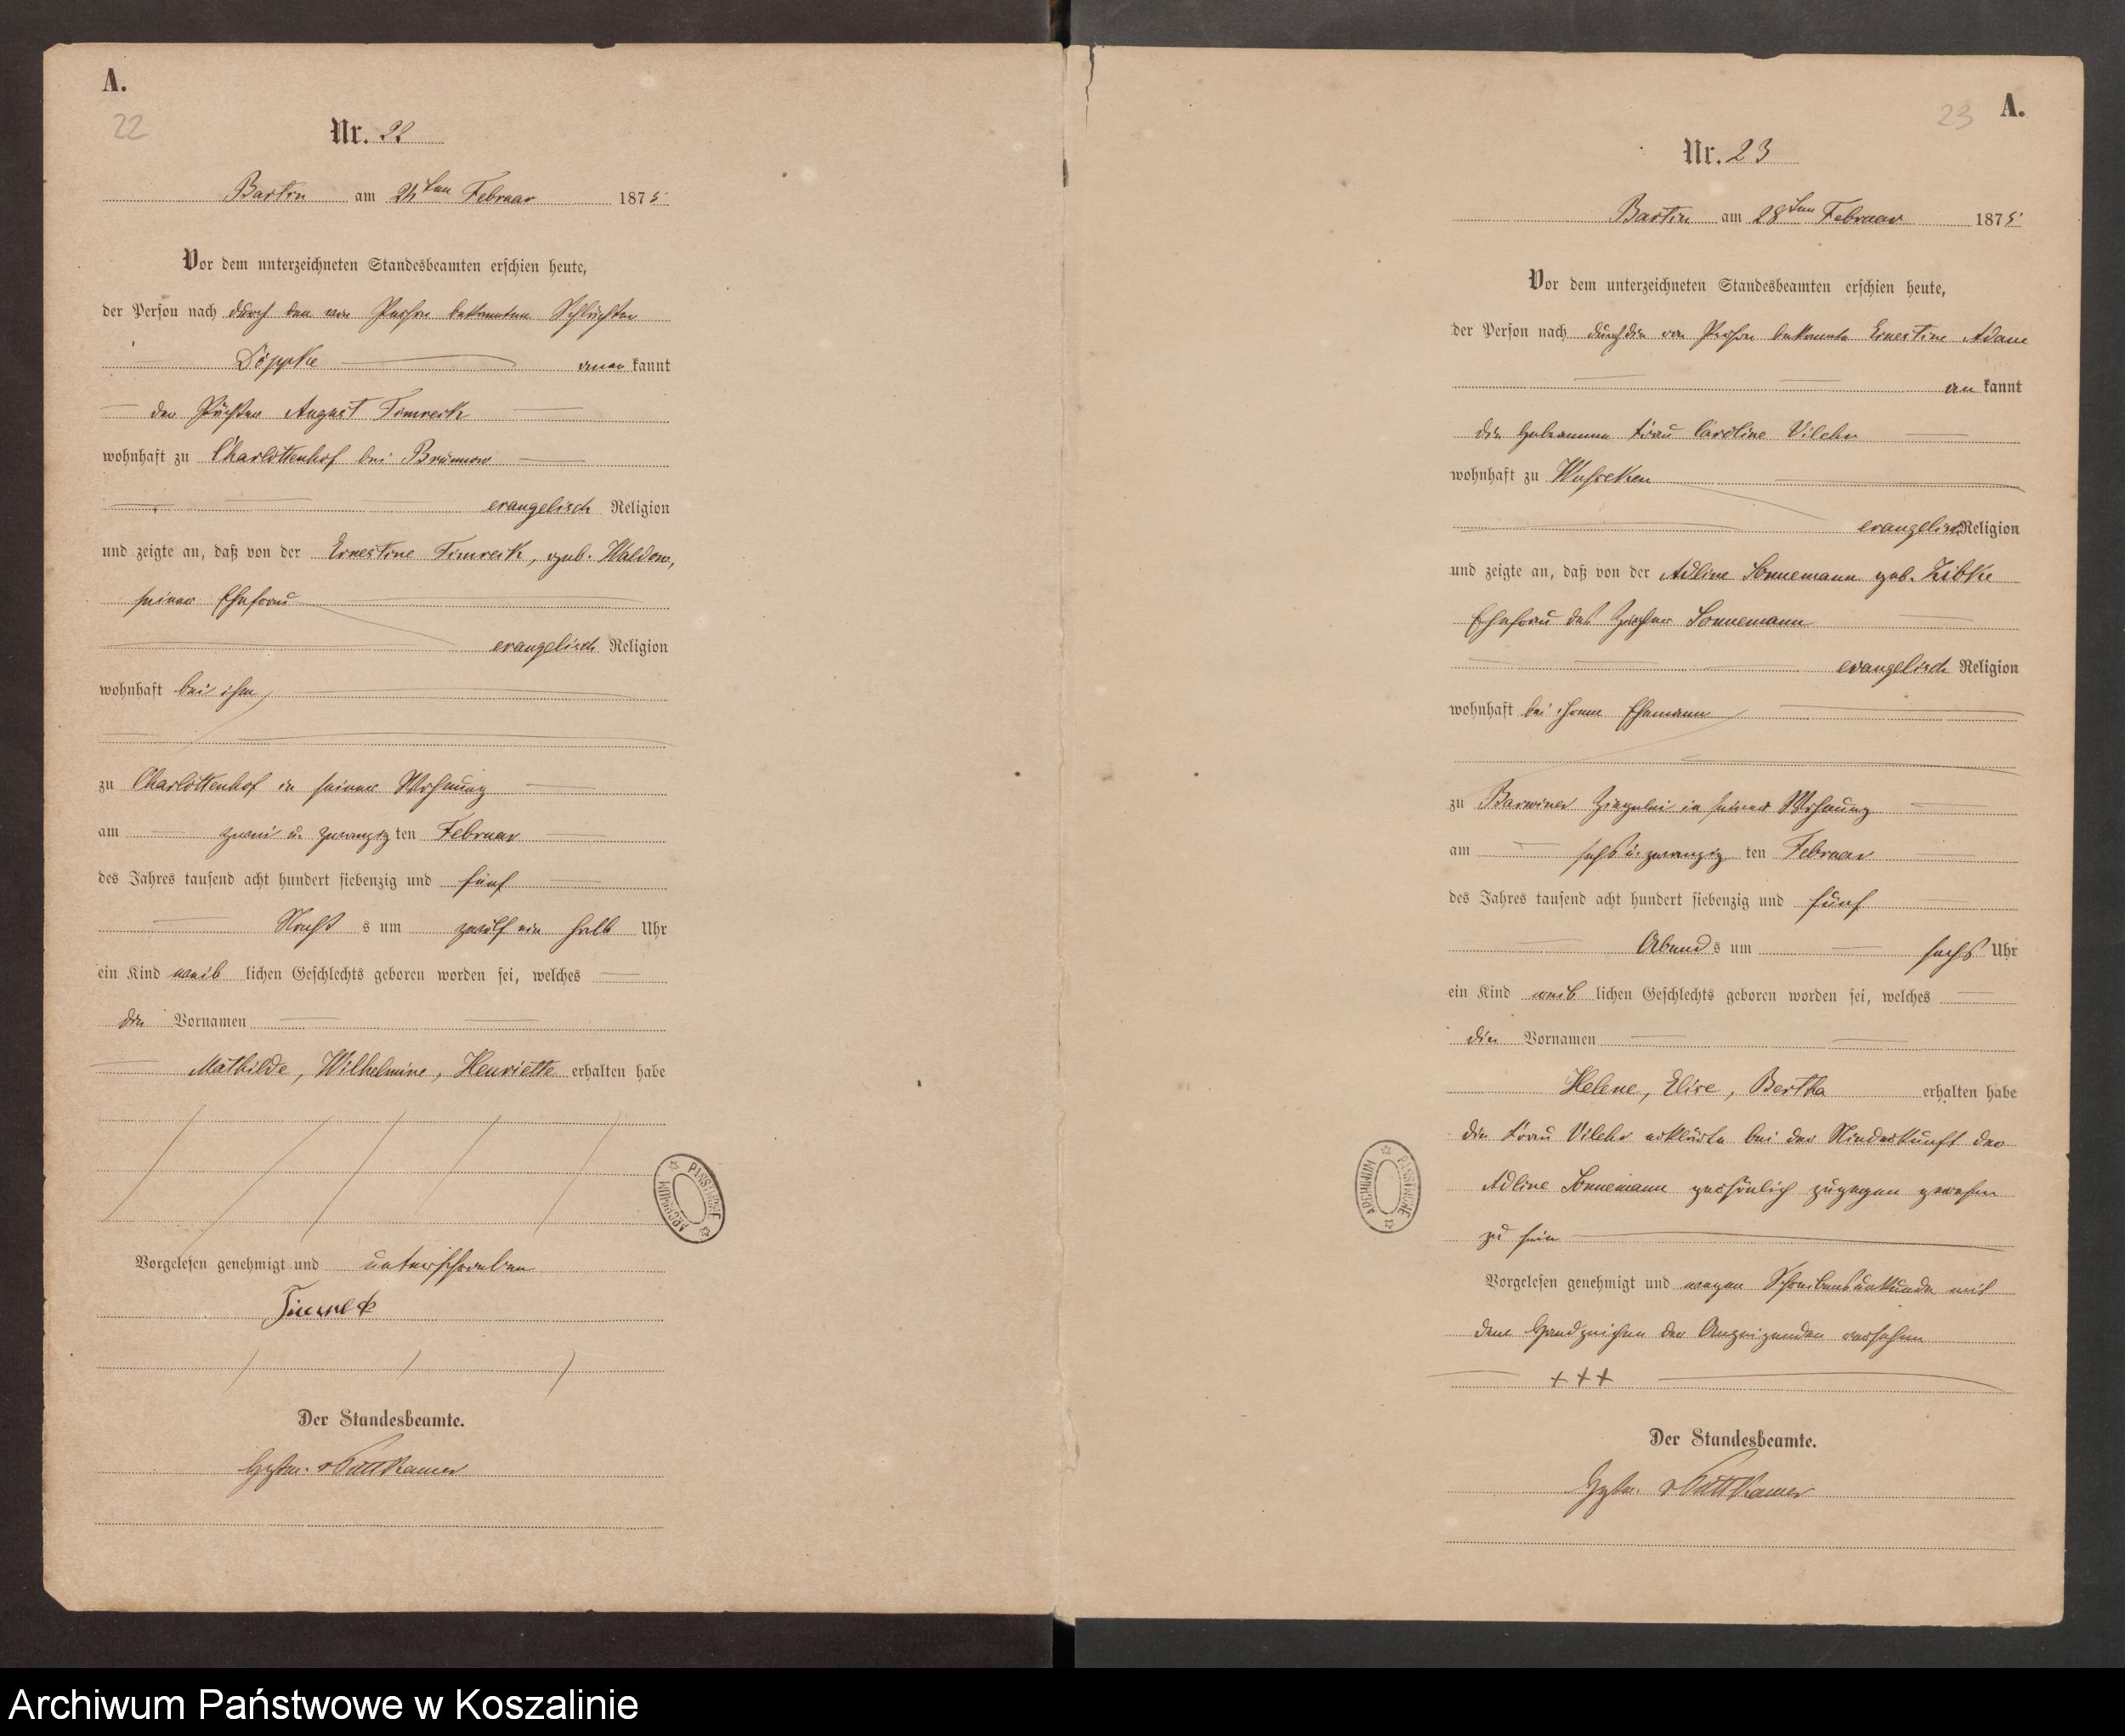 A.
22
Nr. 22
Bartin am 24ten Februar 1875
Vor dem unterzeichneten Standesbeamten erschien heute,
der Person nach durch den von Person bekannten
Döppke aner kannt
der August Timreck
wohnhaft zu Charlottenhof bei Brünnow
evangelisch Religion
und zeigte an, daß von der Ernestine Timreck, geb. Waldow,
seiner Ehefrau
evangelisch Religion
wohnhaft bei ihm,
zu Charlottenhof in seiner Wohnung
am zwei u. zwanzig ten Februar
des Jahres tausend acht hundert siebenzig und fünf
Nacht s um zwölf ein halb Uhr
ein Kind weib lichen Geschlechts geboren worden sei, welches
die Vornamen
Mathilde, Wilhelmine, Henriette erhalten habe
Vorgelesen genehmigt und unterschrieben
Timreck
Der Standesbeamte.
v Puttkamer
ARCHIWUM PAŃSTWOWE
A.
23
Nr. 23
Bartin am 28ten Februar 1875
Vor dem unterzeichneten Standesbeamten erschien heute,
der Person nach durch die von Person bekannte Ernestine Adam
an kannt
die Hebamme Frau Caroline Vilehr
wohnhaft zu Wusseken
evangelisch Religion
und zeigte an, daß von der Adline Sonnemann geb. Zibke
Ehefrau des Ziegler Sonnemann
evangelisch Religion
wohnhaft bei ihrem Ehemann
zu Barwiner Ziegelei in seiner Wohnung
am sechs u. zwanzig ten Februar
des Jahres tausend acht hundert siebenzig und fünf
Abend s um sechs Uhr
ein Kind weib lichen Geschlechts geboren worden sei, welches
die Vornamen
Helene, Elise, Bertha erhalten habe
die Frau Vilehr erklärte bei der Niederkunft der
Adline Sonnemann persönlich zugegen gewesen
zu sein
Vorgelesen genehmigt und wegen Schreibensunkunde mit
dem Handzeichen der Anzeigenden versehen
+++
Der Standesbeamte.
v Puttkamer
ARCHIWUM PAŃSTWOWE
Archiwum Państwowe w Koszalinie